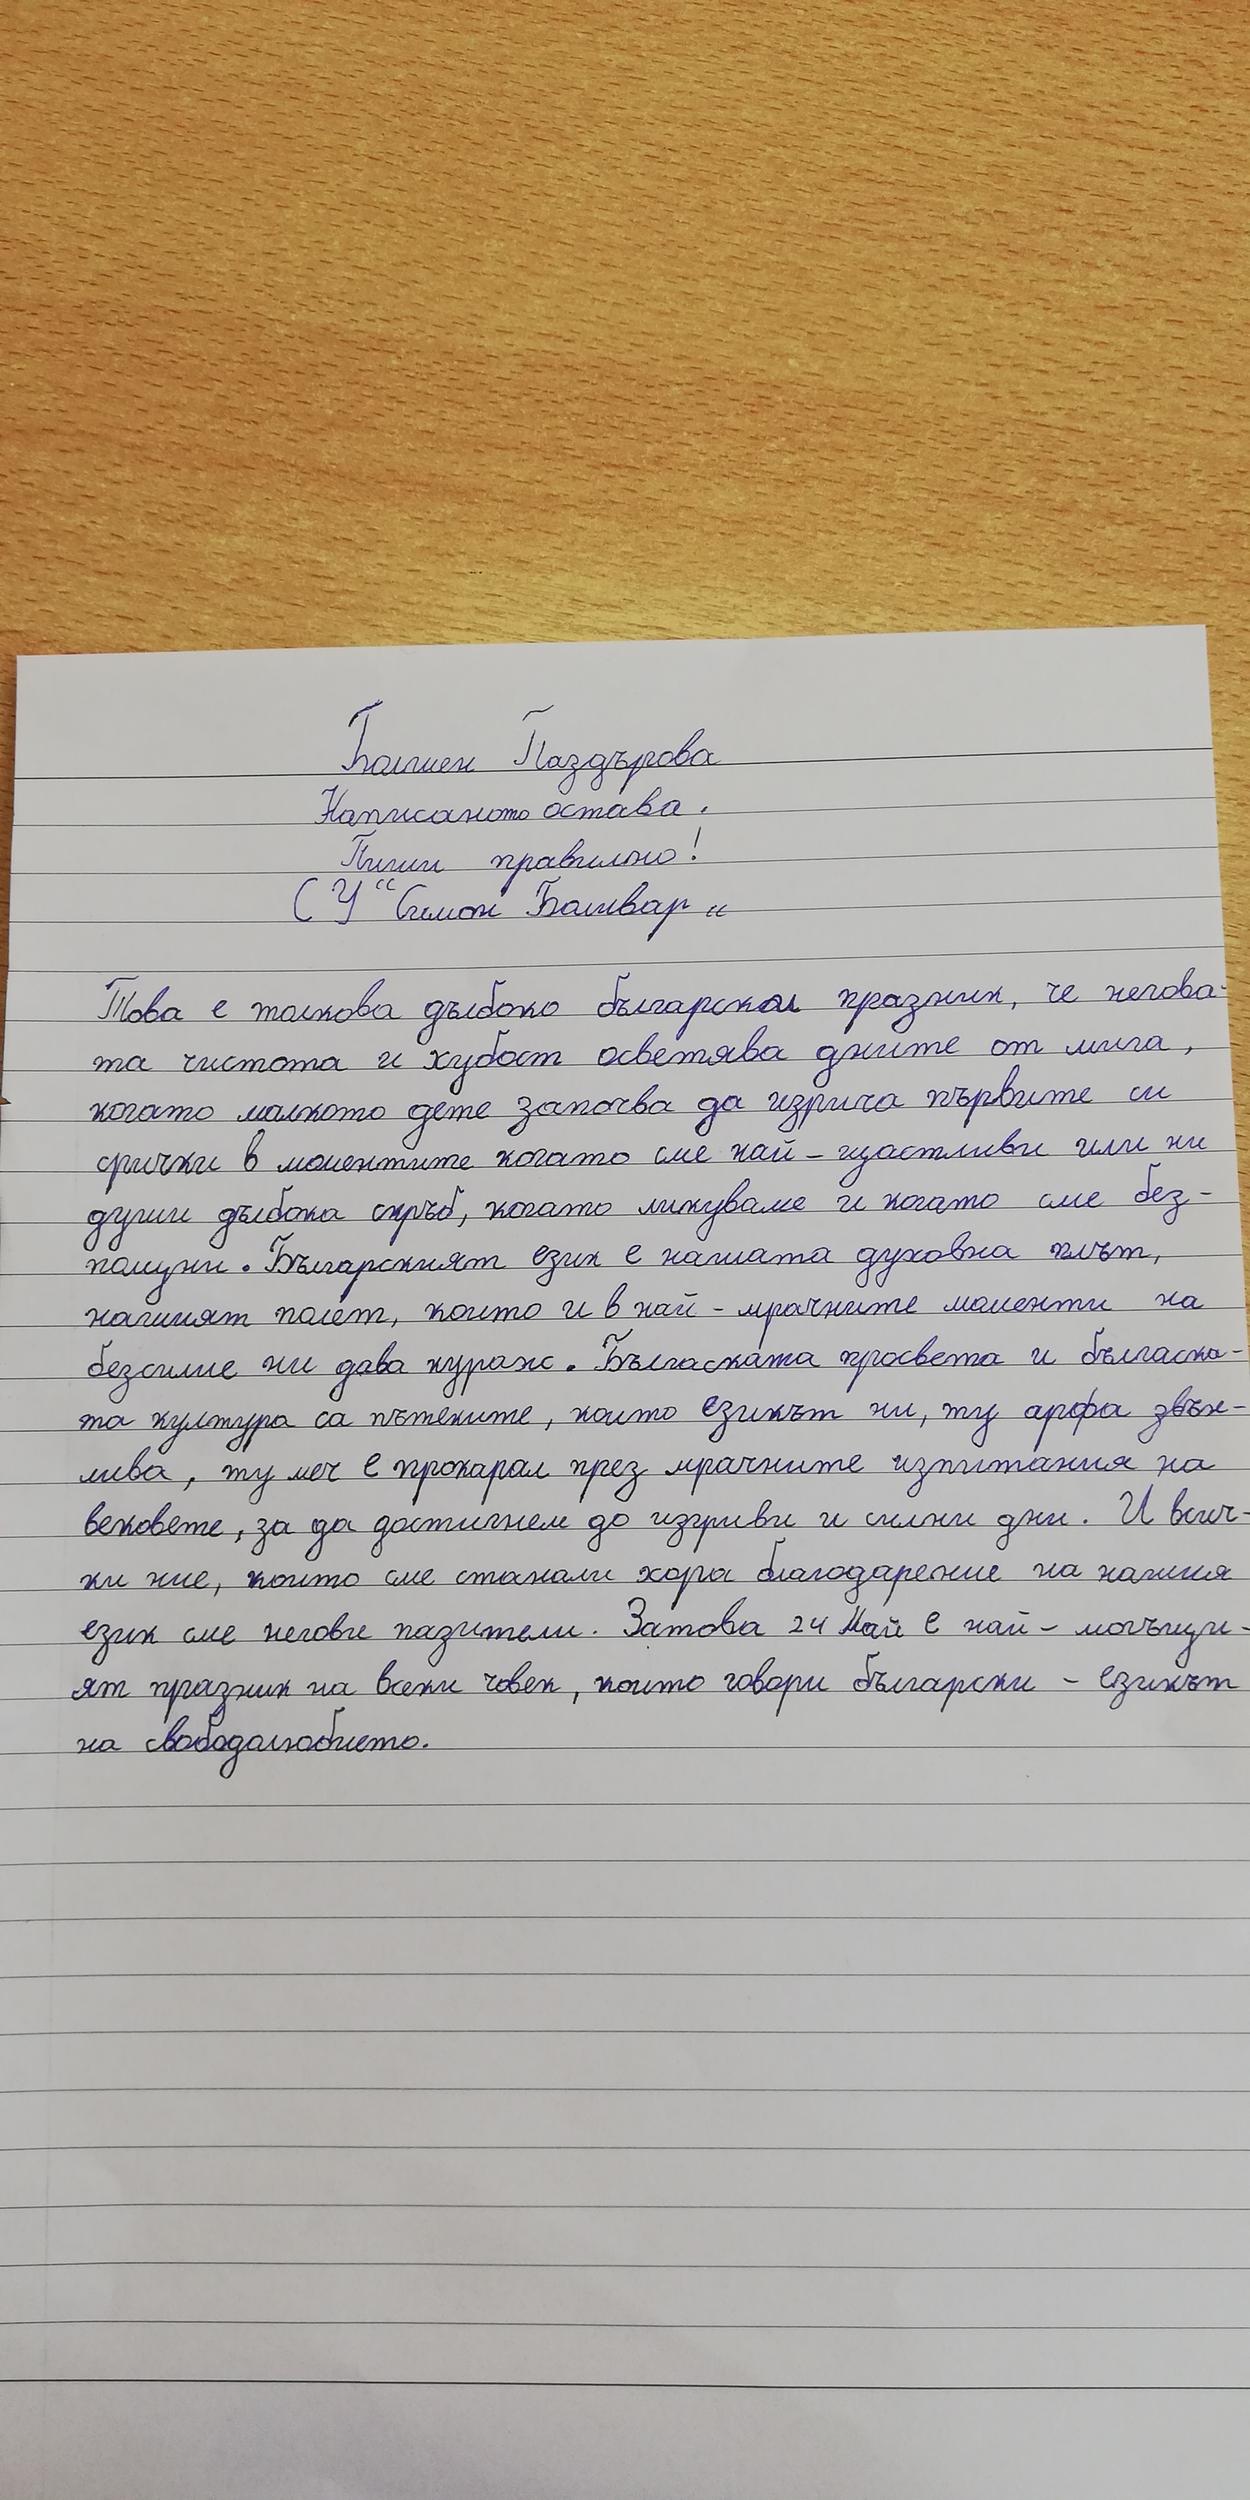 Паздърова
Написаното остава.
Пиши правилно!
СУ “Симон Боливар„
Това е толкова дълбоко български празник, че негова-
та чистота и хубост осветява дните от мига,
когато малкото дете започва да изрича първите си
срички в моментите когато сме най-щастливи или ни
души дълбока скръб, когато ликуваме и когато сме без-
помщни. Българският език е нашата духовна плът,
нашият полет, които и в най-мрачните моменти на
безсилие ни дава кураж. Бългаската просвета и бългаска-
та култура са пътеките, които езикът ни, ту арфа звън-
лива, ту меч е прокарал през мрачните изпитания на
вековете, за да достигнем до изгриви и силни дни. И всич-
ки ние, които сме станали хора благодарение на нашия
език сме негови пазители. Затова 24 Май е най-могъщи-
ят празник на всеки човек, които говори български - езикът
на свободолюбието.